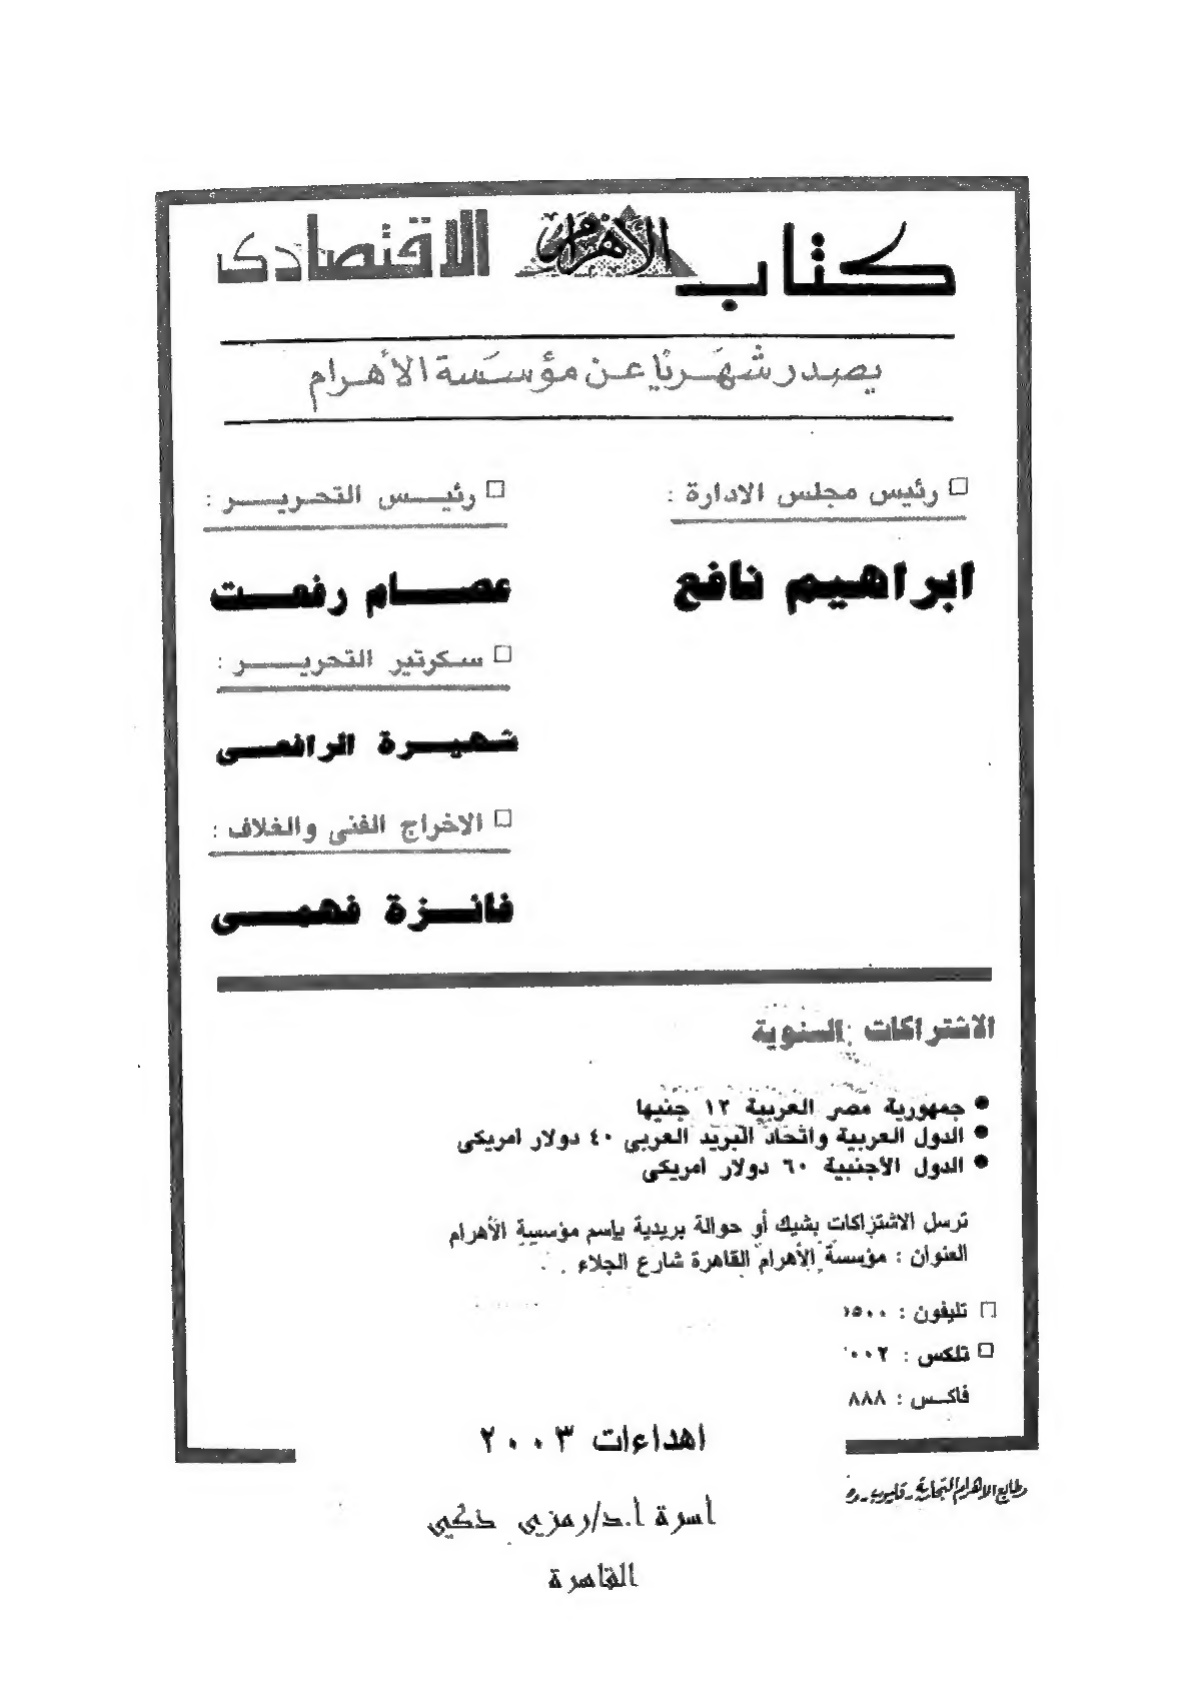 كتاب الأهرام الاقتصادى
يصدر شهريًا عن مؤسسة الأهرام
□ رئيس مجلس الادارة :
ابراهيم نافع
□ رئيس التحرير :
عصام رفعت
□ سكرتير التحرير :
شهيرة الرافعى
□ الاخراج الفنى والغلاف :
فائزة فهمى
الاشتراكات السنوية
● جمهورية مصر العربية ١٢ جنيها
● الدول العربية واتحاد البريد العربى ٤٠ دولار امريكى
● الدول الأجنبية ٦٠ دولار امريكى
ترسل الاشتراكات بشيك أو حوالة بريدية بإسم مؤسسة الأهرام
العنوان : مؤسسة الأهرام القاهرة شارع الجلاء
□ تليفون :
□ تلكس :
فاكس : ٨٨٨
اهداءات ٢٠٠٣
اسرة ا.د/رمزي ذكي
القاهرة
مطابع الاهرام التجارية - قليوب -